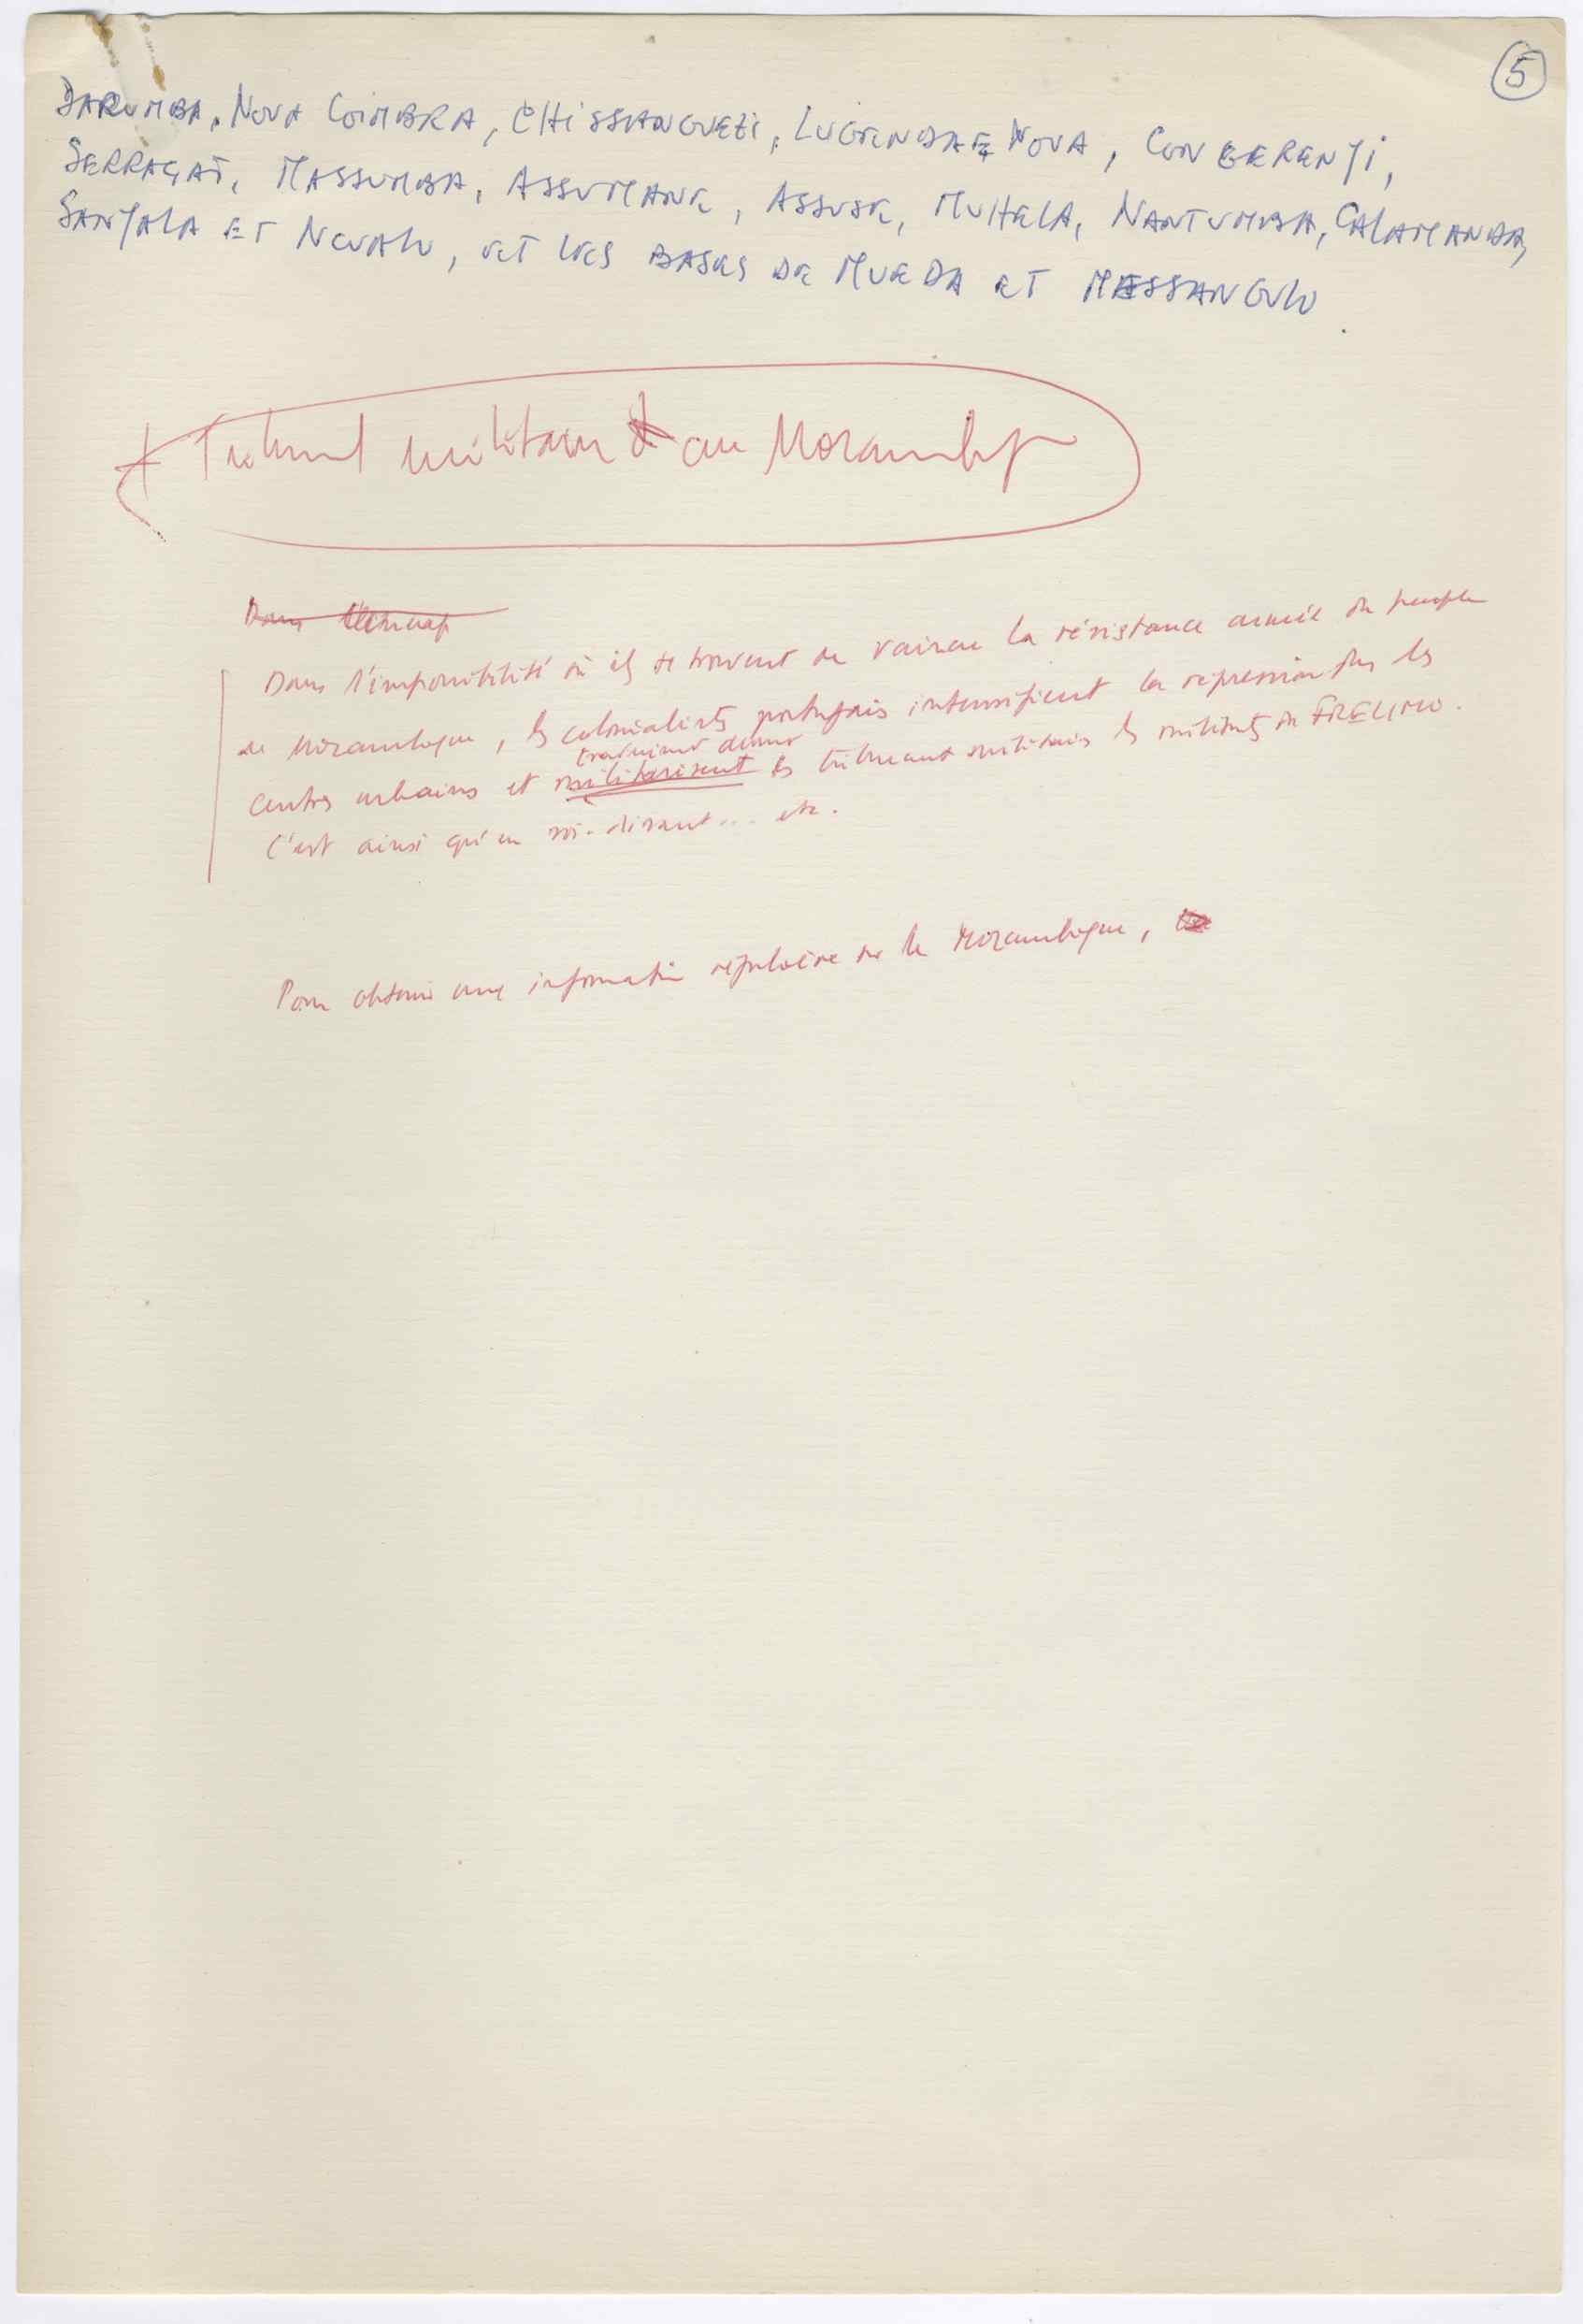 5
DARUMBA, NOVA COIMBRA, CHISSANGUEZI, LUGENDA E NOVA, CONGERENJI,
SERRAÇAÕ, MASSUMBA, ASSUMANE, ASSUSE, MUHELA, NANTUMBA, CALAMANDA,
SANJALA ET NGUALO, ET LES BASES DE MUEDA ET MESSANGULO.
Tribunal militaire au Mozambique
Dans
Dans l'impossibilité où ils se trouvent de vaincre la résistance armée du peuple
de Mozambique, les colonialistes portugais intensifient la répression dans les
traduisent devant
centres urbains et militarisent les tribunaux militaires les militants du FRELIMO.
C'est ainsi qu'un soi-disant... etc.
Pour obtenir une information régulière sur le Mozambique,